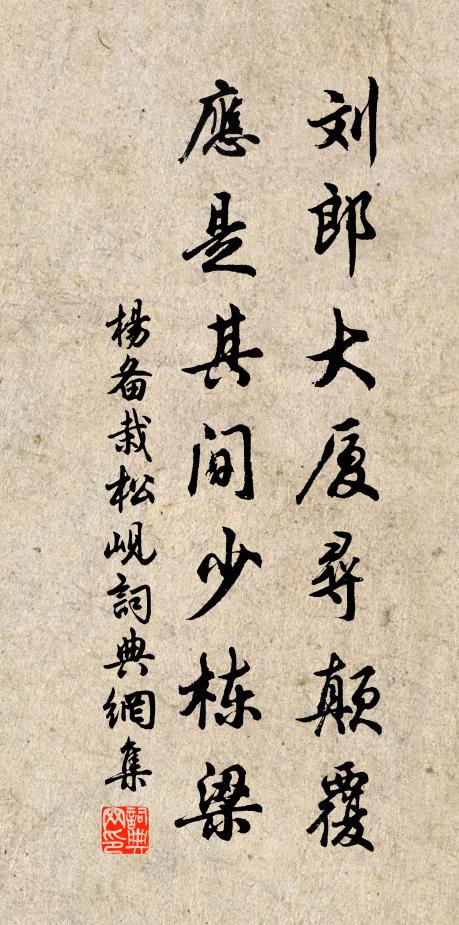 刘郎大厦寻颠覆
應是其间少栋梁
楊备栽松岘詞典網集
詞典网印